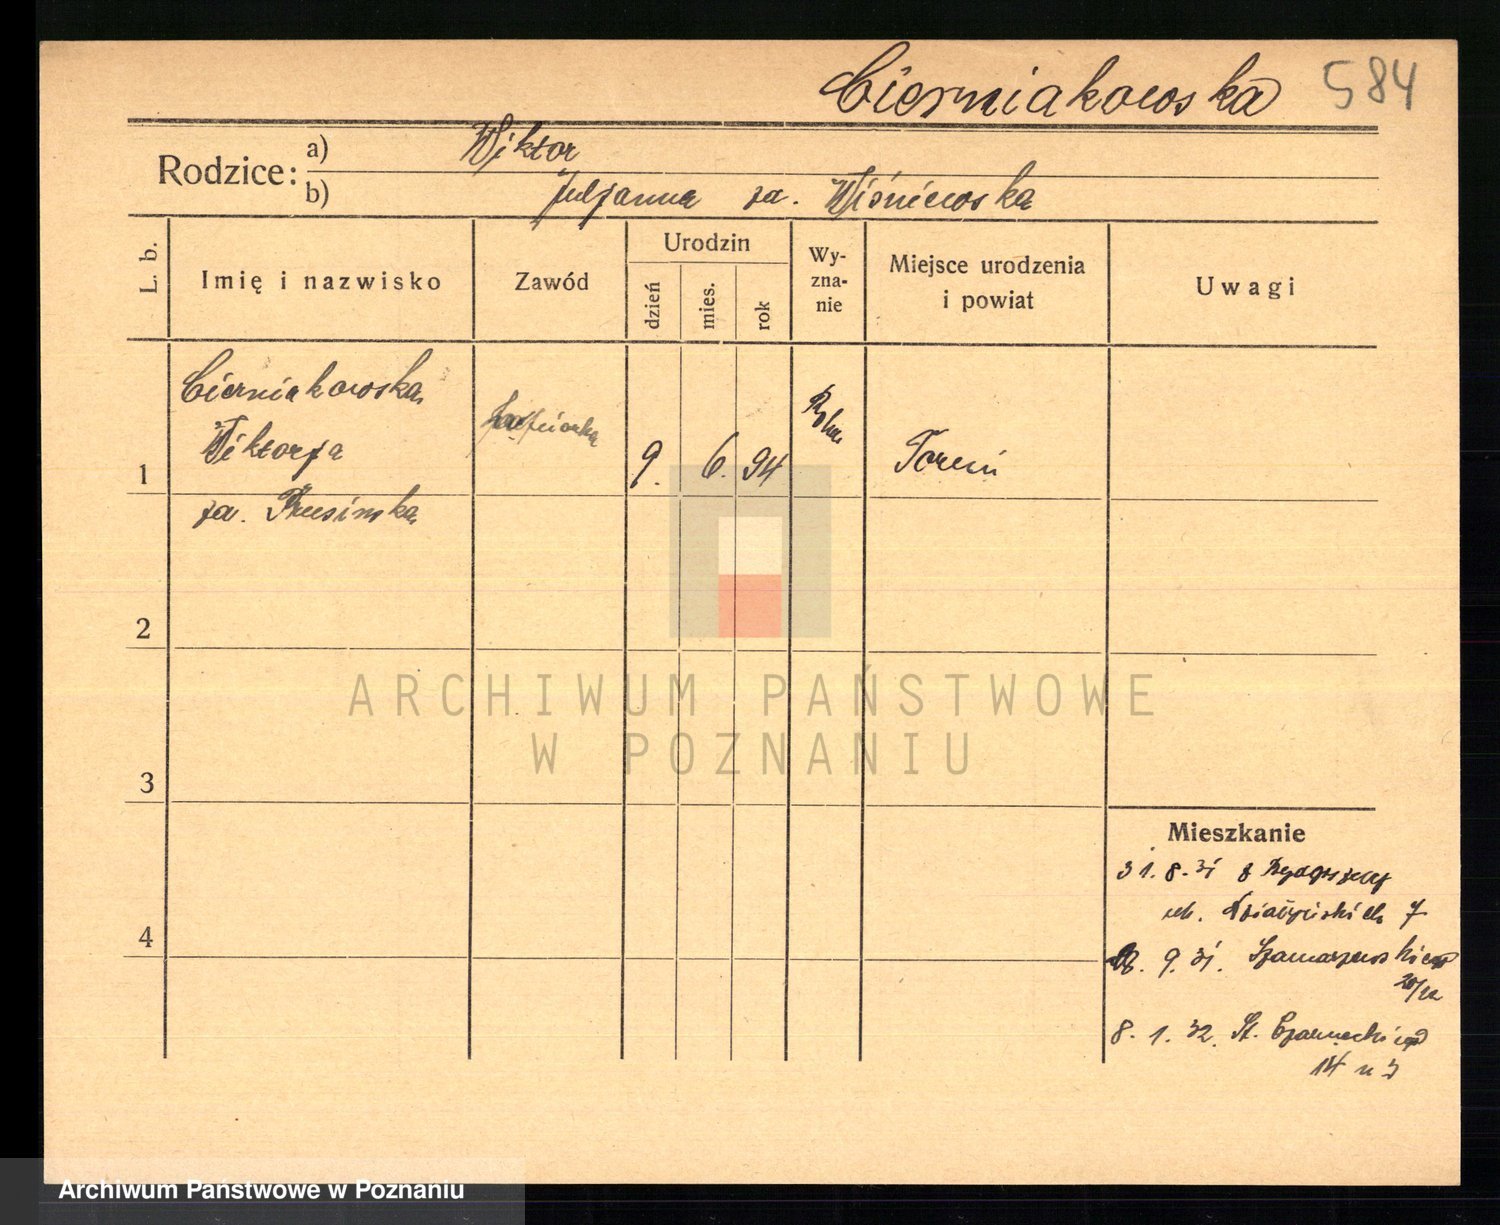 Cierniakowska 584
Rodzice:
a) Wiktor
b) Juljanna za. Wiśniewska
L. b.
Imię i nazwisko
Zawód
Urodzin
dzień
mies.
rok
Wy-
zna-
nie
Miejsce urodzenia
i powiat
Uwagi
Cierniakowska
Wiktorja
1 9. 6. 94 Toruń
za. Prusimska
2
3
4
Mieszkanie
31. 8. 31 z Bydgoszczy
ul. Działyńskich 7
9. 31. Szamarzewskiego
8. 1. 32. St. Czarneckiego
14
ARCHIWUM PAŃSTWOWE
W POZNANIU
Archiwum Państwowe w Poznaniu